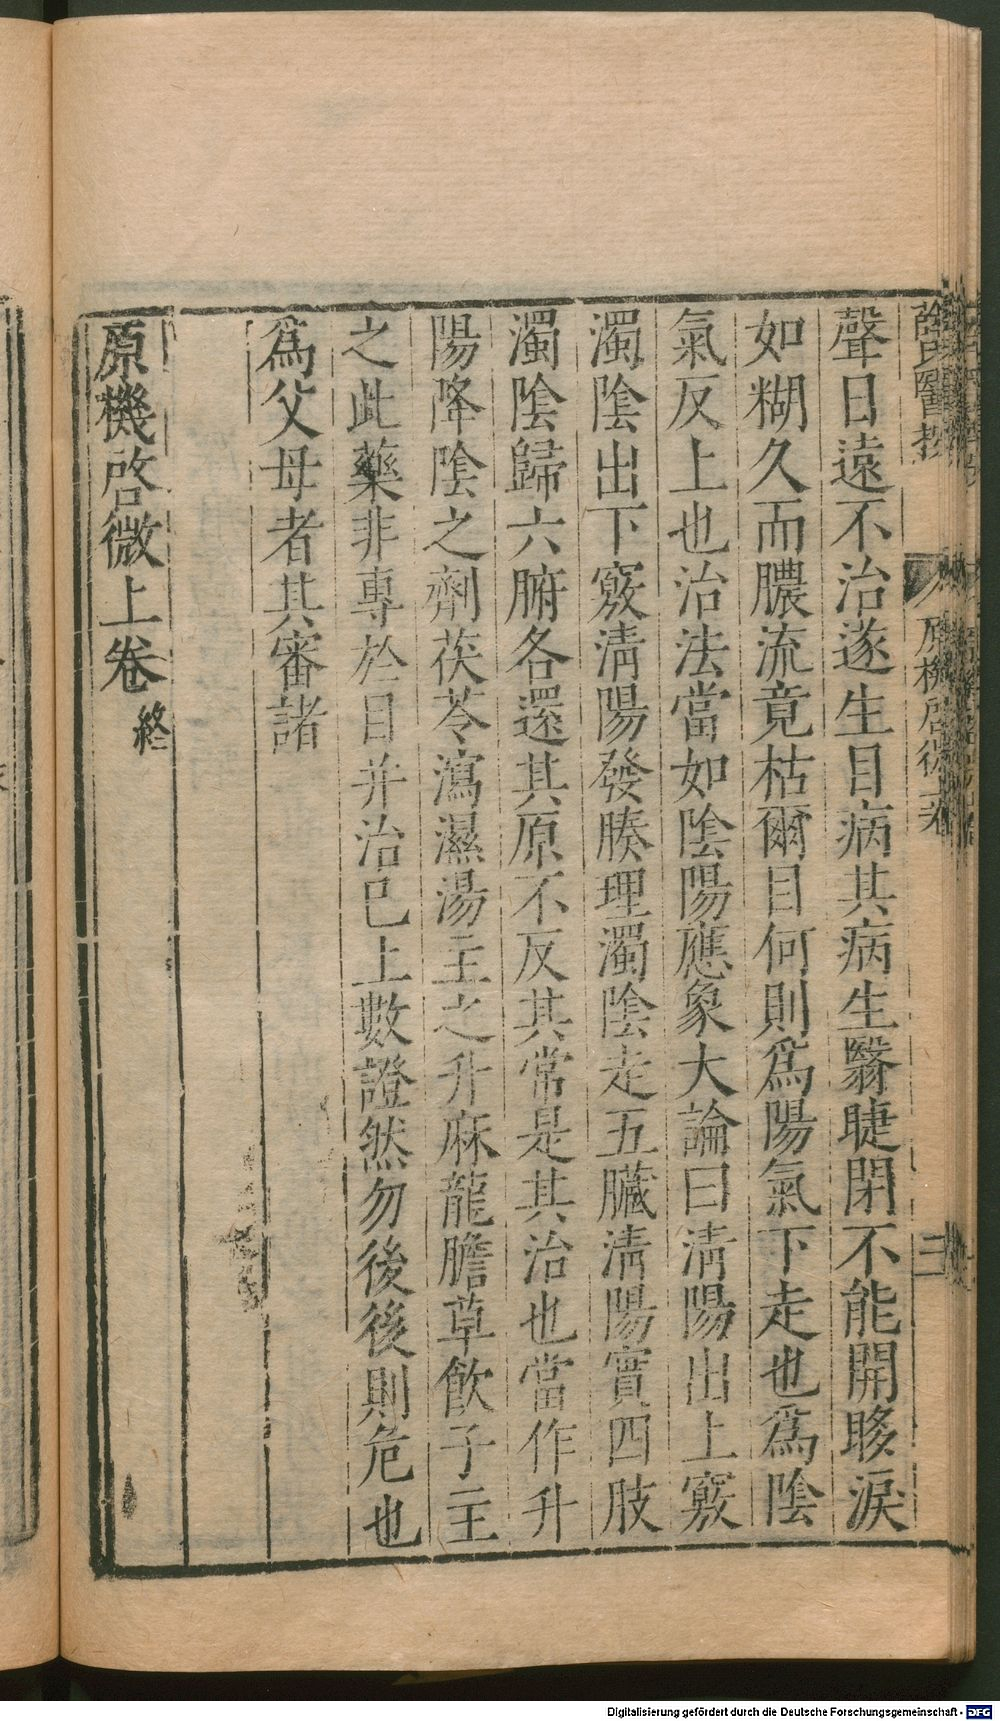 薛氏醫抄 原機啓微上卷
聲日遠不治遂生目病其病生翳睫閉不能開眵淚
如糊久而膿流竟枯爾目何則爲陽氣下走也爲陰
氣反上也治法當如陰陽應象大論曰淸陽出上竅
濁陰出下竅淸陽發腠理濁陰走五臟淸陽實四肢
濁陰歸六腑各還其原不反其常是其治也當作升
陽降陰之劑茯苓瀉濕湯主之升麻龍膽草飮子主
之此藥非專於目并治已上數證然勿後後則危也
爲父母者其審諸
原機啓微上卷 終
Digitalisierung gefördert durch die Deutsche Forschungsgemeinschaft - DFG